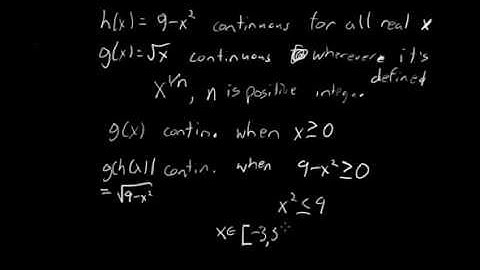 h(x) = 9-x² continuous for all real x
g(x)=√x continuous wherever it's
defined
x^1/n, n is positive integ.
g(x) contin. when x≥0
g(h(x)) contin. when 9-x²≥0
= √9-x²
x²≤9
x∈ [-3,3